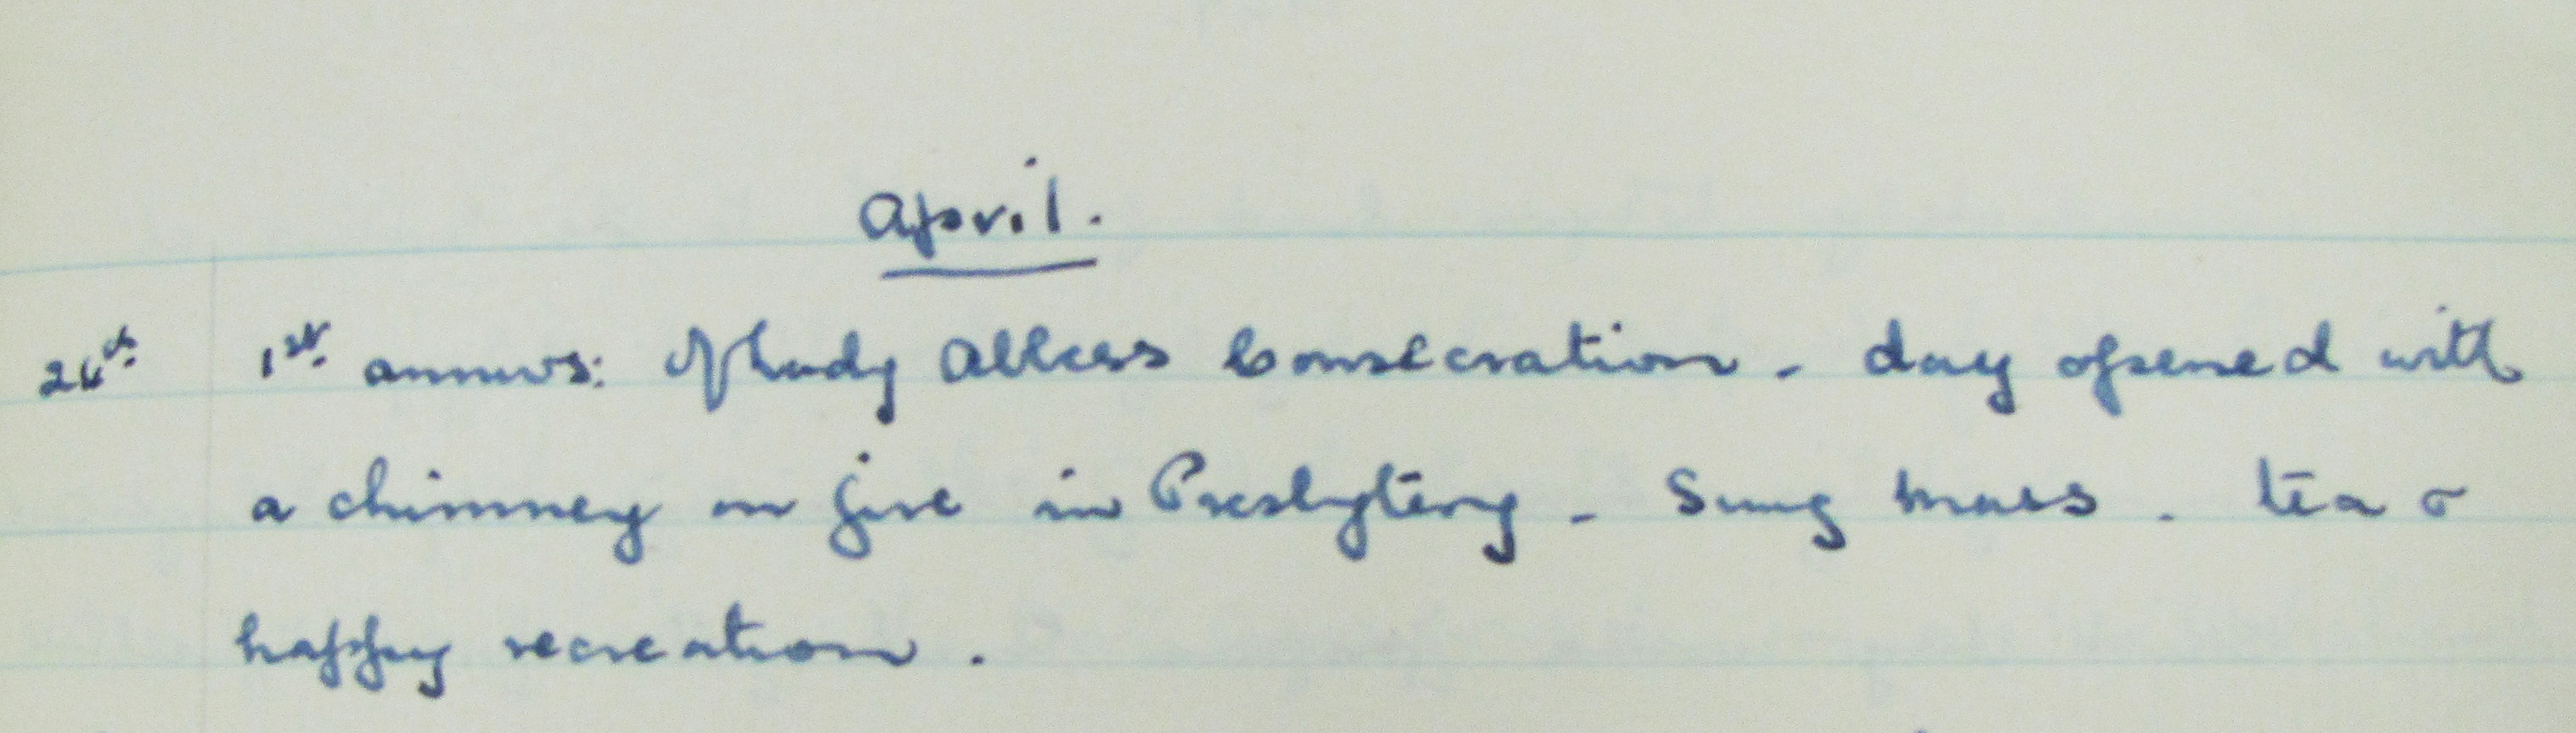 April.
26th 1st annivs: of Lady Abbess Consecration - day opened with
a chimney on fire in Presbytery - Sung Mass. tea &
happy recreation.